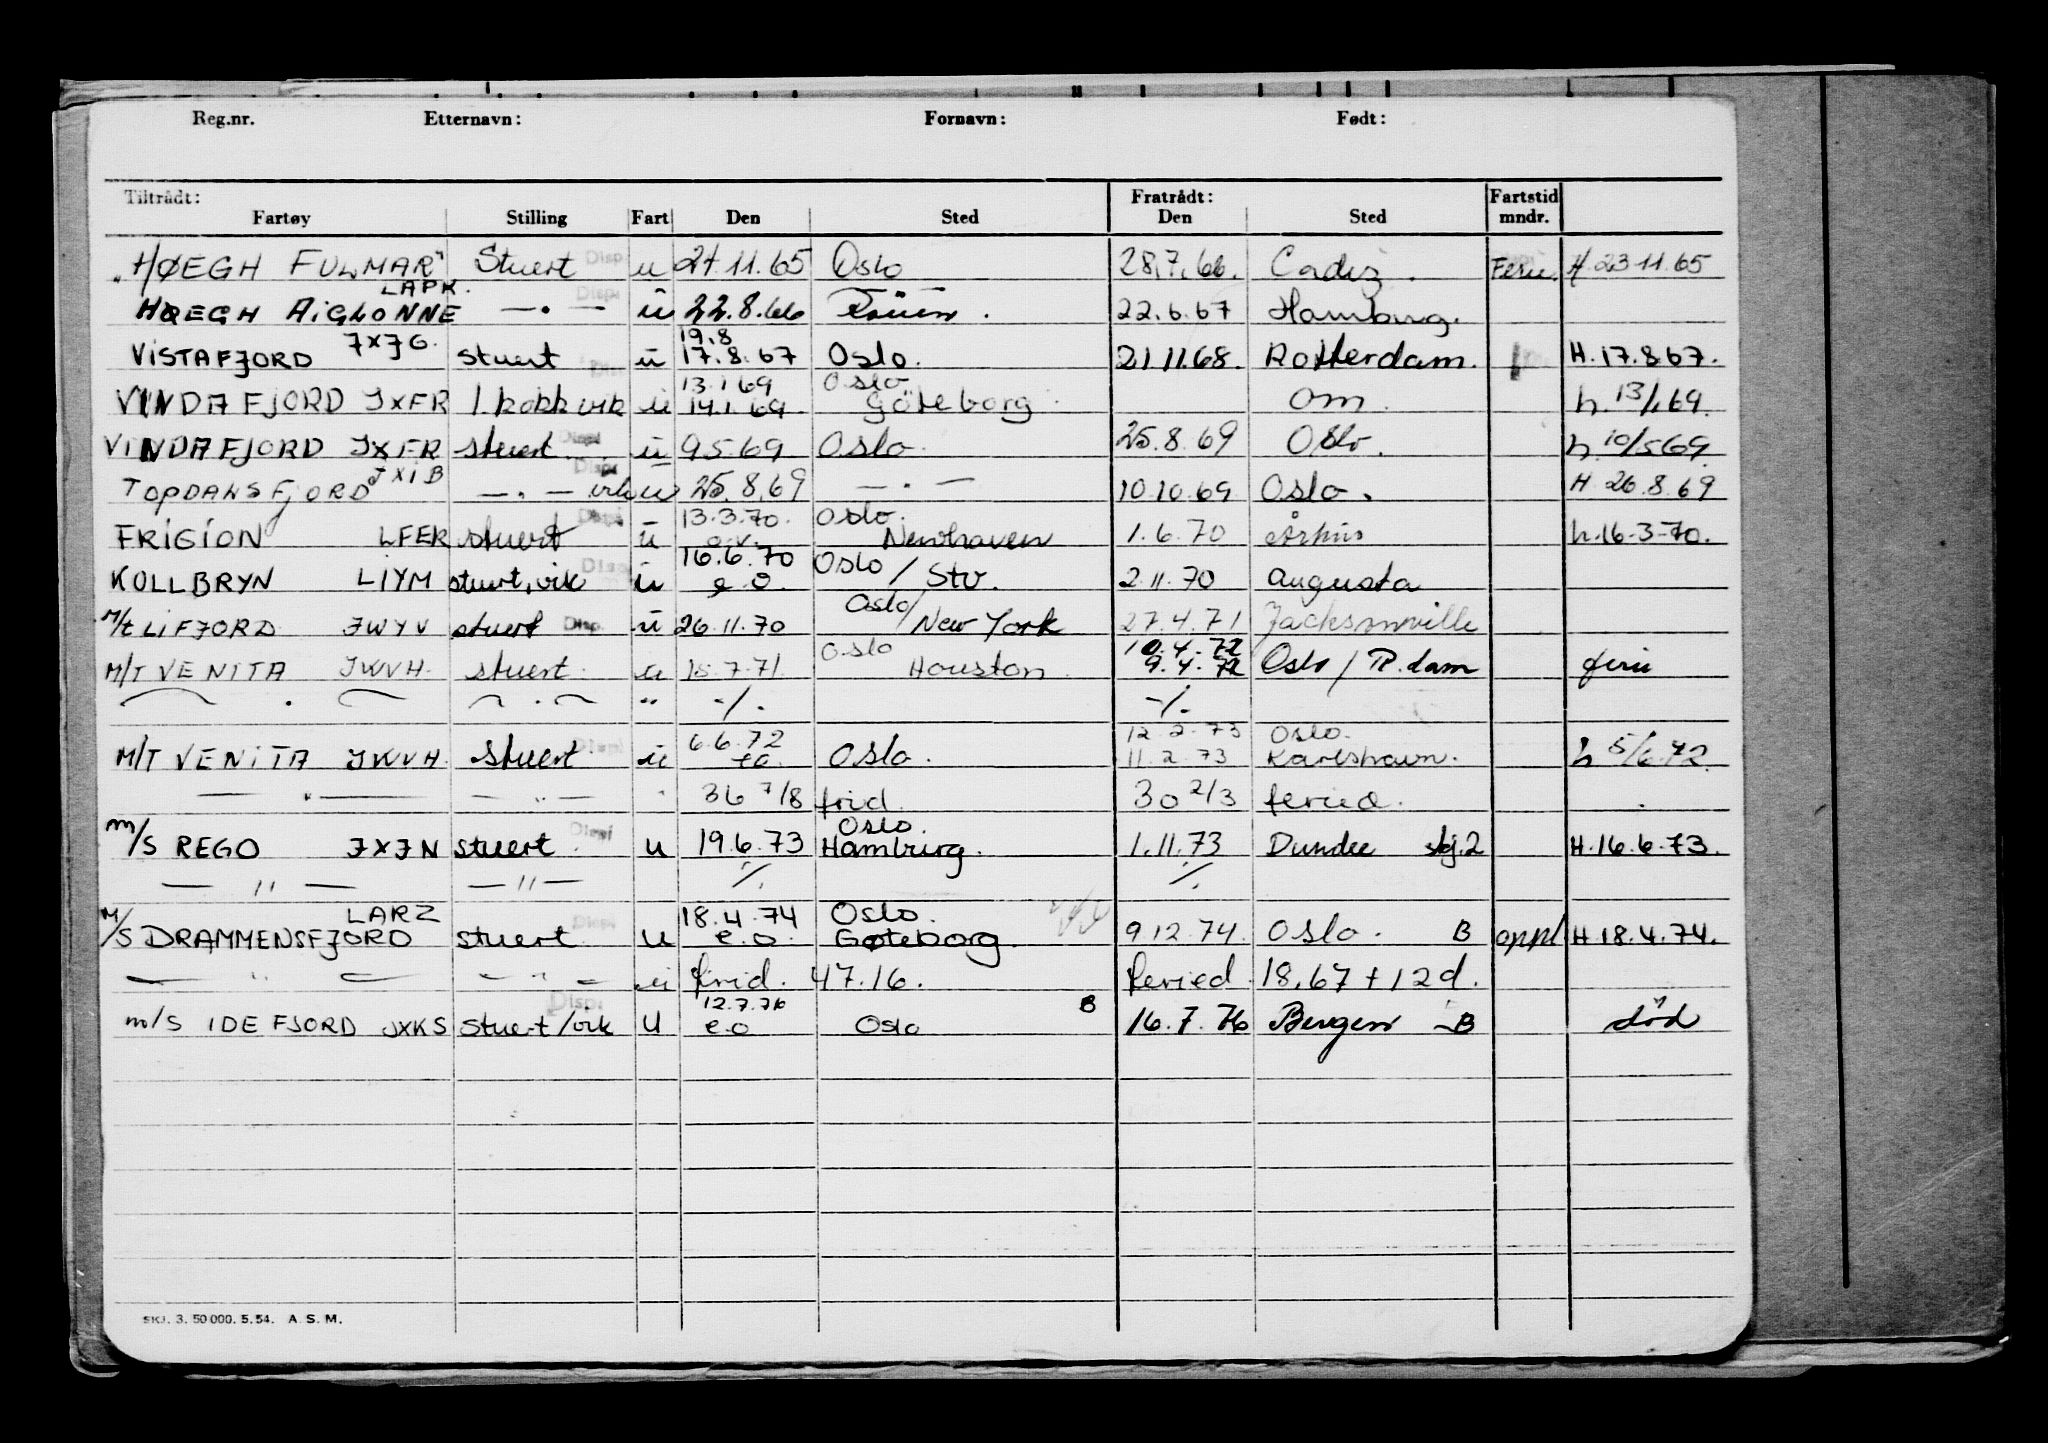 Reg.nr. Etternavn: Fornavn: Født:
Tiltrådt: Fratrådt: Fartstid
Fartøy Stilling Fart Den Sted Den Sted mndr.
"HØEGH FULMAR" Stuert Disp. u 27.11.65 Oslo 28.7.66. Cadiz. Ferie H. 23-11.65
LAPK. Disp.
HØEGH AiGLONNE —.— u 22.8.66 Rouen. 22.6.67 Hamburg.
JXJG. 19.8
VISTAFJORD stuert u 17.8.67 Oslo. 21.11.68. Rotterdam. H.17.8.67.
13.1 69 Oslo
VINDAFJORD JXFR 1. kokk vik u 14.1.69. Göteborg om. h. 13/1.69.
VINDAFJORD JXFR stuert Disp. u 9.5.69 Oslo. 25.8.69 Oslo. h. 10/5 69.
TOPDALSFJORD JXIB —.— vik u 25.8.69 —.— 10.10.69 Oslo. H 26.8.69
13.3.70. Oslo.
FRIGION LFER stuert Disp. u Newhaven 1.6.70 Århus h.16-3-70.
16.6.70 Oslo/
KOLLBRYN LIYM stuert, vik Disp. u e.o. Stv. 2.11.70 Augusta
Oslo/
M/t LIFJORD JWYV stuert Disp. u 26.11.70 New York 27.4.71 Jacksonville
Oslo 10.4.72
M/T VENITA JWVH. stuert. u 15.7.71. Houston 9.4.72 Oslo / R.dam ferie
— . — — . — " -/. -/.
6.6.72 12.2.73 Oslo.
M/T VENITA JWVH. stuert Disp. u Oslo. 11.2.73 Karlshavn. h 5/6.72.
— " — — " — " 36 7/8 frid. 30 2/3 feried.
Oslo.
M/S REGO JXJN stuert. Disp. u 19.6.73 Hamburg. 1.11.73 Dundee skj.2 H.16.6.73.
— " — — " — -/. -/.
LARZ 18.4.74 Oslo.
M/S DRAMMENSFJORD stuert Disp. u e.o. Gøteborg. 9.12.74. Oslo. B oppl H.18.4.74.
— " — — " — u frid. 47.16. feried. 18,67 + 12 d.
Disp. 12.7.76 B
m/S IDEFJORD JXKS stuert/vik U e.o Oslo 16.7.76 Bergen B død
SKJ. 3. 50 000. 5. 54. A. S. M.